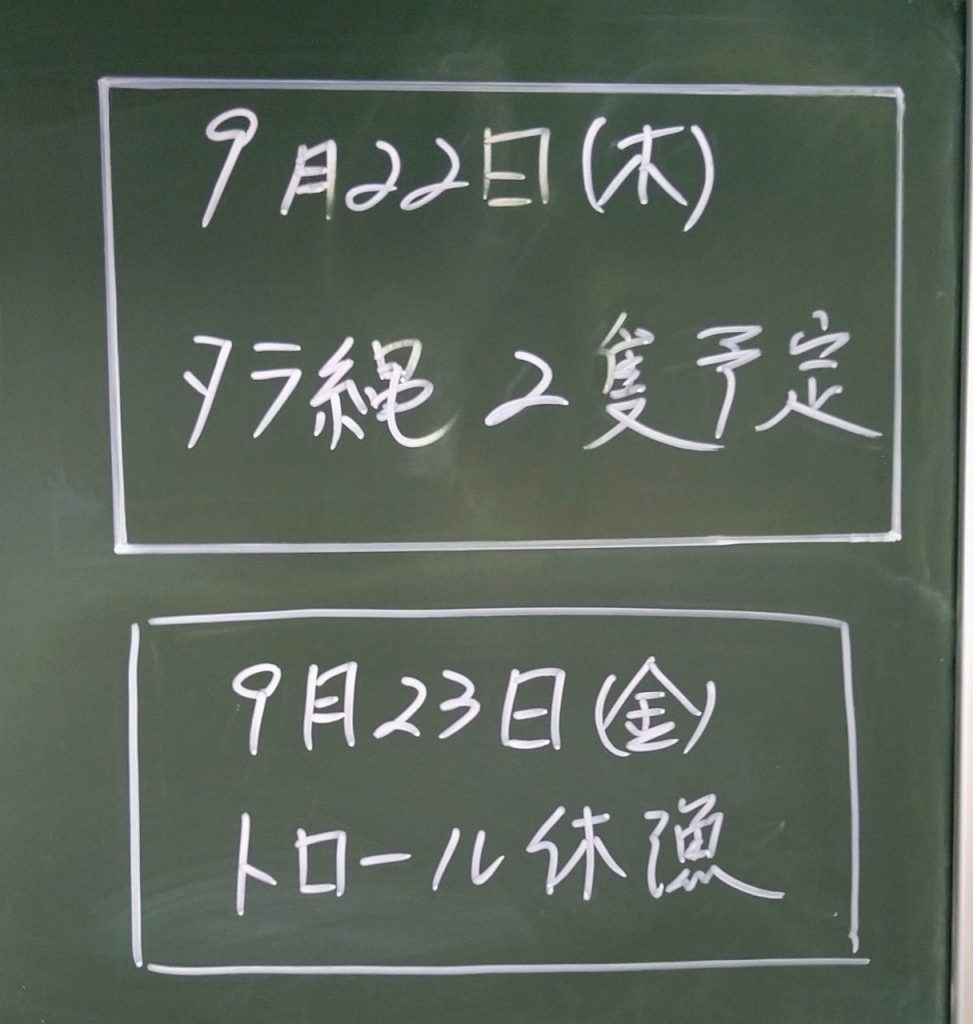 9月22日(木)
タラ縄 2隻予定
9月23日(金)
トロール休漁